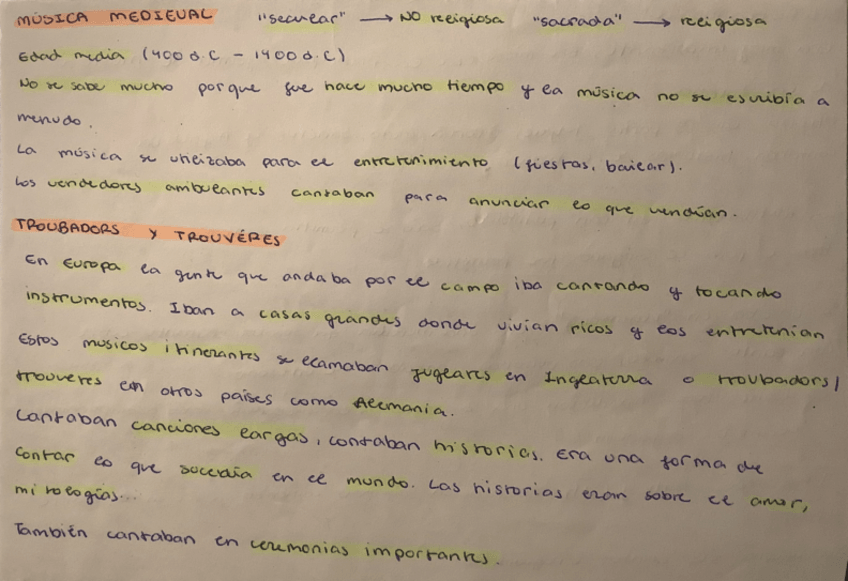 MÚSICA MEDIEVAL "secular" → NO religiosa "sacrada" → religiosa
Edad media (400 d.C - 1400 d.C)
No se sabe mucho porque fue hace mucho tiempo y la música no se escribía a
menudo.
La música se utilizaba para el entretenimiento (fiestas, bailar).
Los vendedores ambulantes cantaban para anunciar lo que vendían.
TROUBADORS Y TROUVÉRES
En Europa la gente que andaba por el campo iba cantando y tocando
instrumentos. Iban a casas grandes donde vivían ricos y los entretenían
Estos musicos itinerantes se llamaban jugelares en Inglaterra o troubadors/
trouveres en otros países como Alemania.
Cantaban canciones largas, contaban historias. Era una forma de
contar lo que sucedía en el mundo. Las historias eran sobre el amor,
mitologías...
También cantaban en ceremonias importantes.